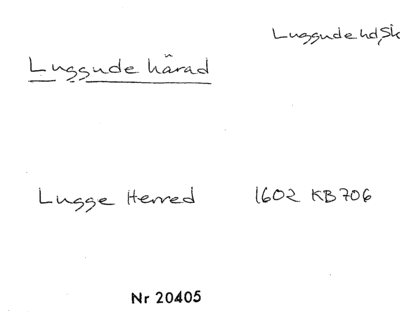 Luggude hd, Sk
Luggude härad
Lugge Herred 1602 KB 706
Nr 20405